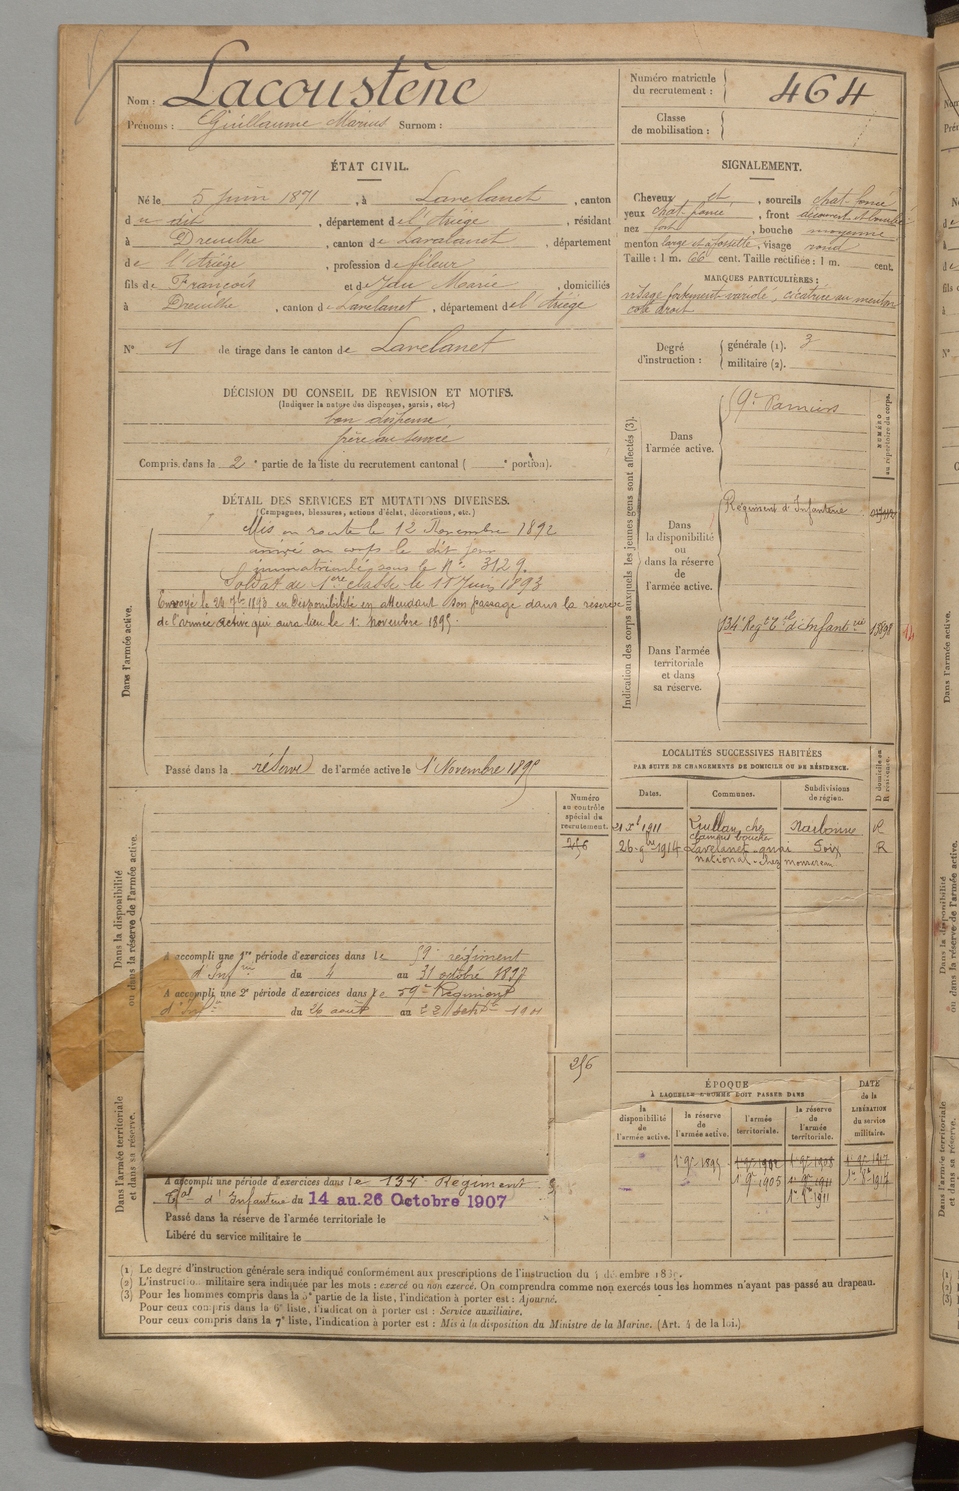 Nom : Lacoustène
Prénoms : Guillaume Marius Surnom :
Numéro matricule du recrutement : 464
Classe de mobilisation :
ÉTAT CIVIL.
Né le 5 Juin 1871, à Lavelanet, canton
du dit, département de l'Ariège, résidant
à Dreuilhe, canton de Lavelanet, département
de l'Ariège, profession de fileur
fils de François et de Marie, domiciliés
à Dreuilhe, canton de Lavelanet, département de l'Ariège
N° 1 de tirage dans le canton de Lavelanet
SIGNALEMENT.
Cheveux et, sourcils chat. foncé
yeux chat. foncé, front découvert et bombé
nez fort, bouche moyenne
menton large et à fossette, visage rond
Taille : 1 m. 66 cent. Taille rectifiée : 1 m. cent.
MARQUES PARTICULIÈRES :
visage fortement variolé, cicatrice au menton
coté droit
Degré d'instruction : générale (1). 3
militaire (2).
DÉCISION DU CONSEIL DE REVISION ET MOTIFS.
(Indiquer la nature des dispenses, sursis, etc.)
bon dispensé
frère au service
Compris dans la 2e partie de la liste du recrutement cantonal ( e portion).
DÉTAIL DES SERVICES ET MUTATIONS DIVERSES.
(Campagnes, blessures, actions d'éclat, décorations, etc.)
Dans l'armée active.
Mis en route le 12 Novembre 1892
arrivé au corps le dit jour
immatriculé sous le N° 3129.
Soldat de 1ère classe le 11 Juin 1893
Envoyé le 24 7bre 1893 en Disponibilité en attendant son passage dans la réserve
de l'armée active qui aura lieu le 1er Novembre 1895.
Passé dans la réserve de l'armée active le 1er Novembre 1895
Indication des corps auxquels les jeunes gens sont affectés (3).
NUMÉRO au répertoire du corps.
Dans l'armée active.
9e Pamiers
Dans la disponibilité ou dans la réserve de l'armée active.
Régiment d'Infanterie
Dans l'armée territoriale et dans sa réserve.
134e Regt Tal d'Infanterie 13898
LOCALITÉS SUCCESSIVES HABITÉES
PAR SUITE DE CHANGEMENTS DE DOMICILE OU DE RÉSIDENCE.
Dates. Communes. Subdivisions de région. D domicile ou R résidence.
1911 chez Narbonne R
26 9bre 1914 Lavelanet quai Foix R
national chez
Dans la disponibilité ou dans la réserve de l'armée active.
Numéro au contrôle spécial du recrutement.
256
A accompli une 1re période d'exercices dans le 59e régiment
d'Infrie du 4 au 31 octobre 1897
A accompli une 2e période d'exercices dans le 59e Régiment
d'Infie du 26 août au 22 Septbre 1901
256
Dans l'armée territoriale et dans sa réserve.
A accompli une période d'exercices dans le 134e Régiment
Tal d'Infanterie du 14 au 26 Octobre 1907
Passé dans la réserve de l'armée territoriale le
Libéré du service militaire le
ÉPOQUE
À LAQUELLE L'HOMME DOIT PASSER DANS
la disponibilité de l'armée active. la réserve de l'armée active. l'armée territoriale. la réserve de l'armée territoriale. DATE de la LIBÉRATION du service militaire.
1er 9bre 1895 1er 9bre 1902 1er 9bre 1908 1er 9bre 1917
1er 9bre 1905 1er 9bre 1911 1917
1911
(1) Le degré d'instruction générale sera indiqué conformément aux prescriptions de l'instruction du 4 décembre 1889.
(2) L'instruction militaire sera indiquée par les mots : exercé ou non exercé. On comprendra comme non exercés tous les hommes n'ayant pas passé au drapeau.
(3) Pour les hommes compris dans la 5e partie de la liste, l'indication à porter est : Ajourné.
Pour ceux compris dans la 6e liste, l'indication à porter est : Service auxiliaire.
Pour ceux compris dans la 7e liste, l'indication à porter est : Mis à la disposition du Ministre de la Marine. (Art. 4 de la loi.)